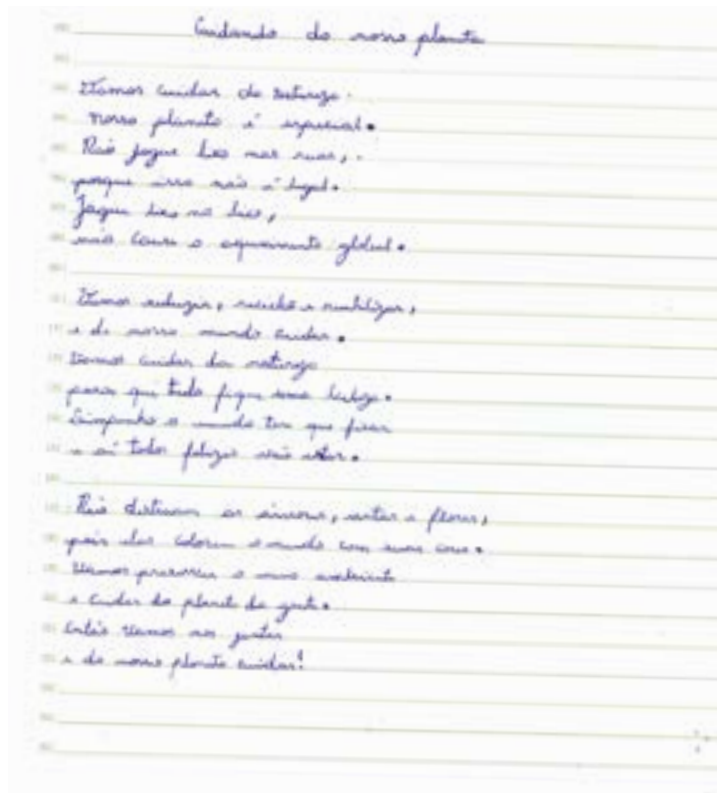 Cuidando do nosso planeta
Vamos cuidar da natureza.
Nosso planeta é especial.
Não jogue lixo nas ruas,
porque isso não é legal.
Jogue lixo no lixo,
não cause o aquecimento global.
Vamos reduzir, reciclar e reutilizar,
e do nosso mundo cuidar.
Vamos cuidar da natureza
para que tudo fique uma beleza.
Limpinho o mundo tem que ficar
e aí todos felizes vão estar.
Não destruam as árvores, matas e flores,
pois elas colorem o mundo com suas cores.
Vamos preservar o meio ambiente
e cuidar do planeta da gente.
Então vamos nos juntar
e do nosso planeta cuidar!